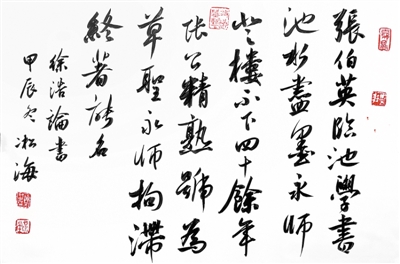 張伯英臨池學書
池水盡墨永師
登樓不下四十餘年
張公精熟號為
草聖永師拘滯
終著能名
徐浩論書
甲辰冬凇海